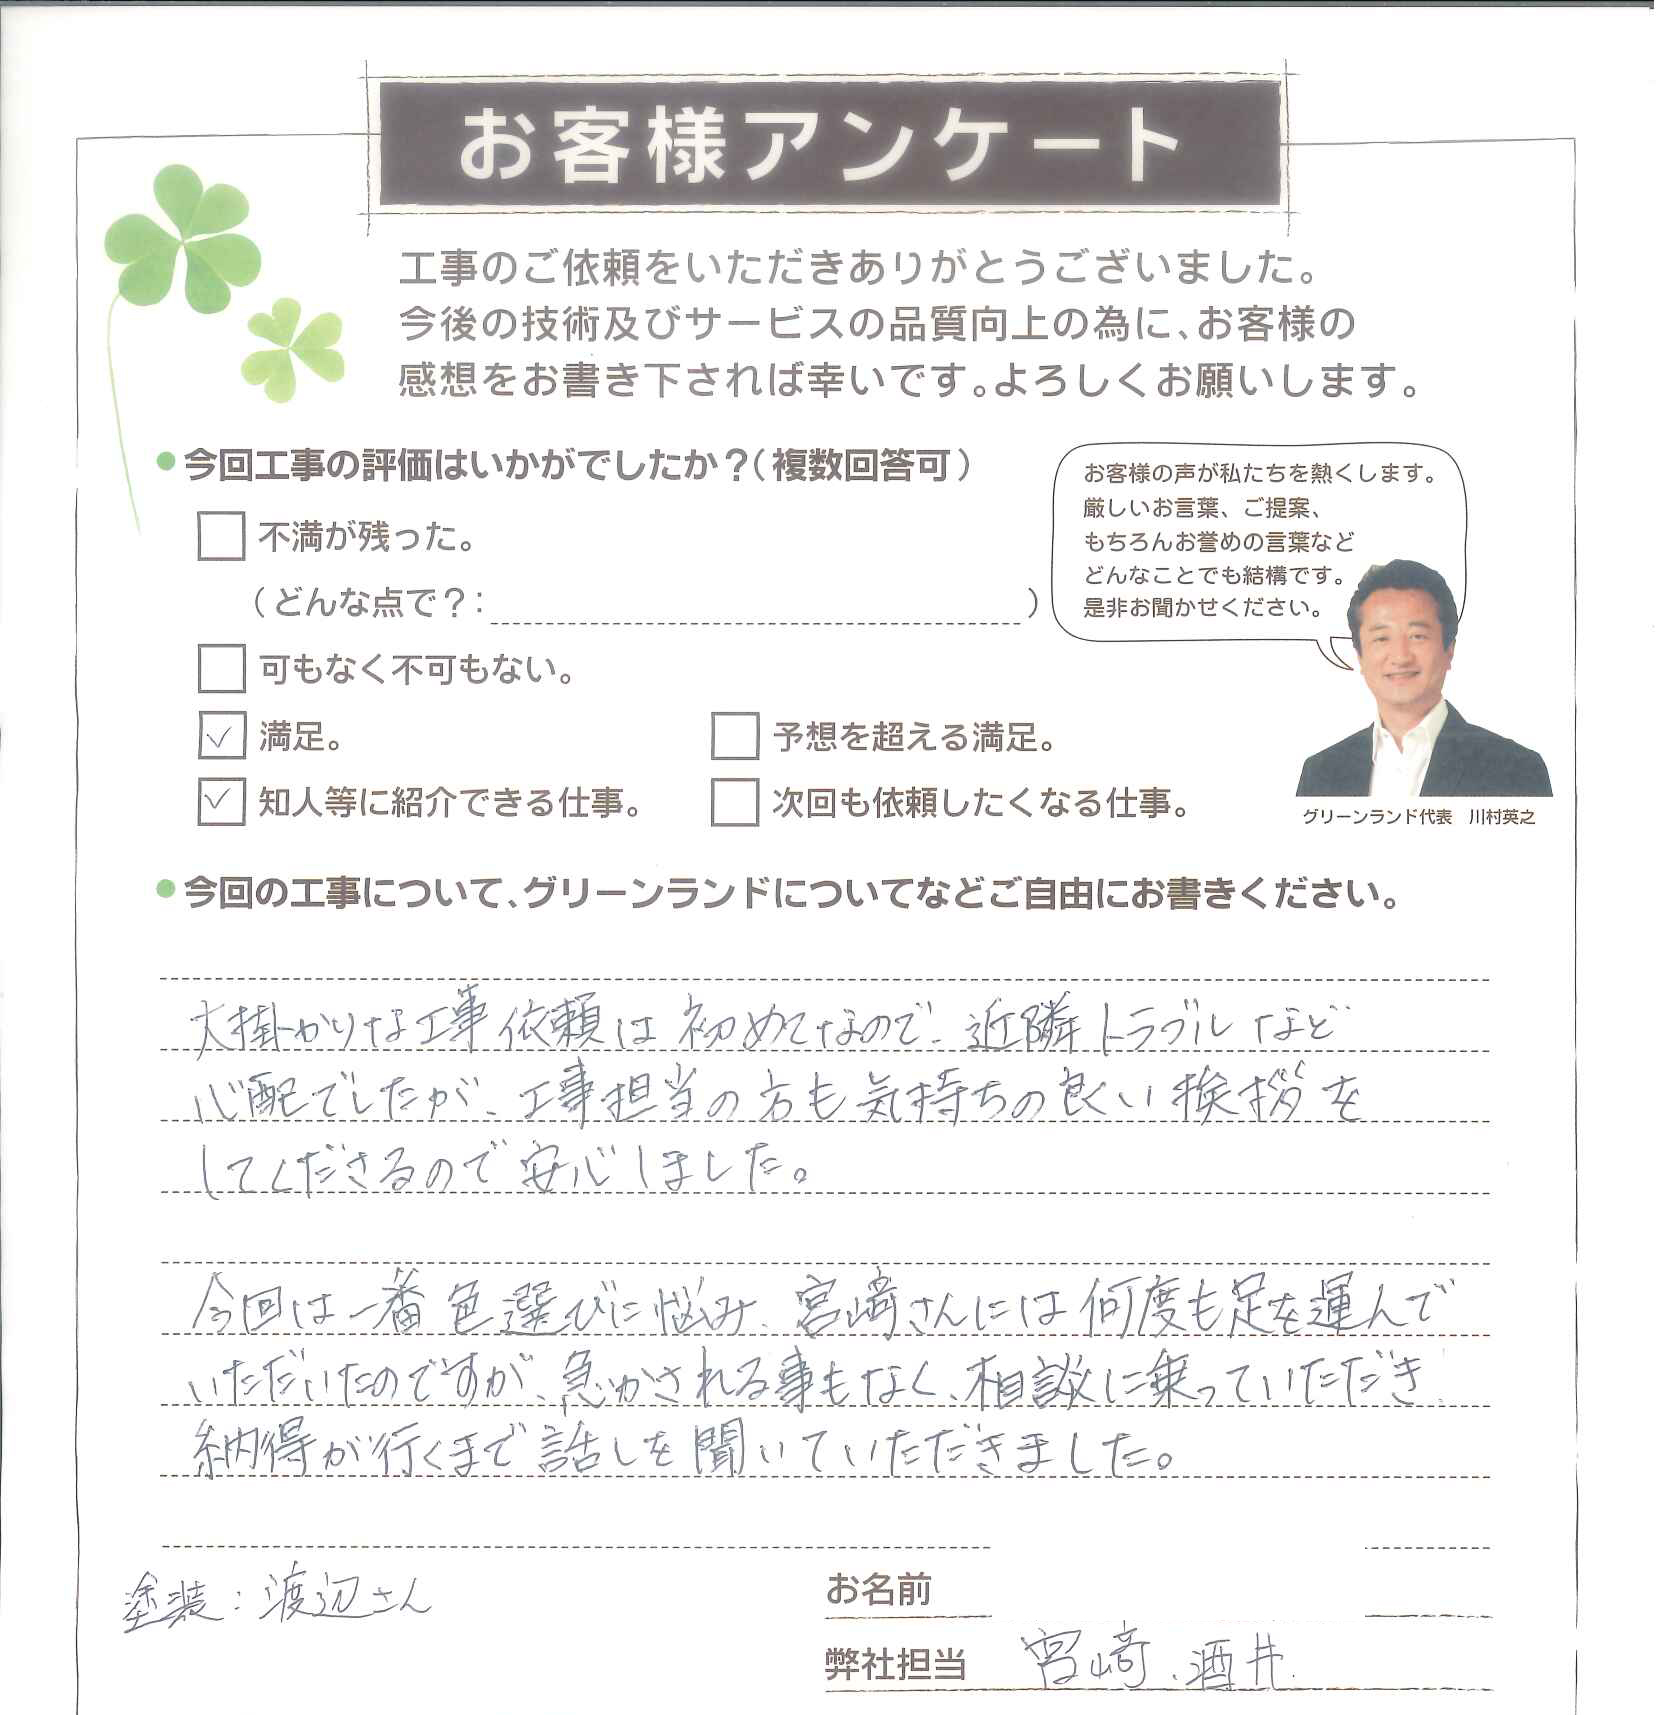 お客様アンケート
工事のご依頼をいただきありがとうございました。
今後の技術及びサービスの品質向上の為に、お客様の
感想をお書き下されば幸いです。よろしくお願いします。
●今回工事の評価はいかがでしたか？（複数回答可）
お客様の声が私たちを熱くします。
厳しいお言葉、ご提案、
もちろんお誉めの言葉など
どんなことでも結構です。
是非お聞かせください。
不満が残った。
（どんな点で？：　）
可もなく不可もない。
満足。
予想を超える満足。
知人等に紹介できる仕事。
次回も依頼したくなる仕事。
グリーンランド代表　川村英之
●今回の工事について、グリーンランドについてなどご自由にお書きください。
大掛かりな工事依頼は初めてなので、近隣トラブルなど
心配でしたが、工事担当の方も気持ちの良い挨拶を
してくださるので安心しました。
今回は一番色選びに悩み、宮崎さんには何度も足を運んで
いただいたのですが、急かされる事もなく、相談に乗っていただき
納得が行くまで話しを聞いていただきました。
塗装：渡辺さん
お名前
弊社担当　宮崎、酒井